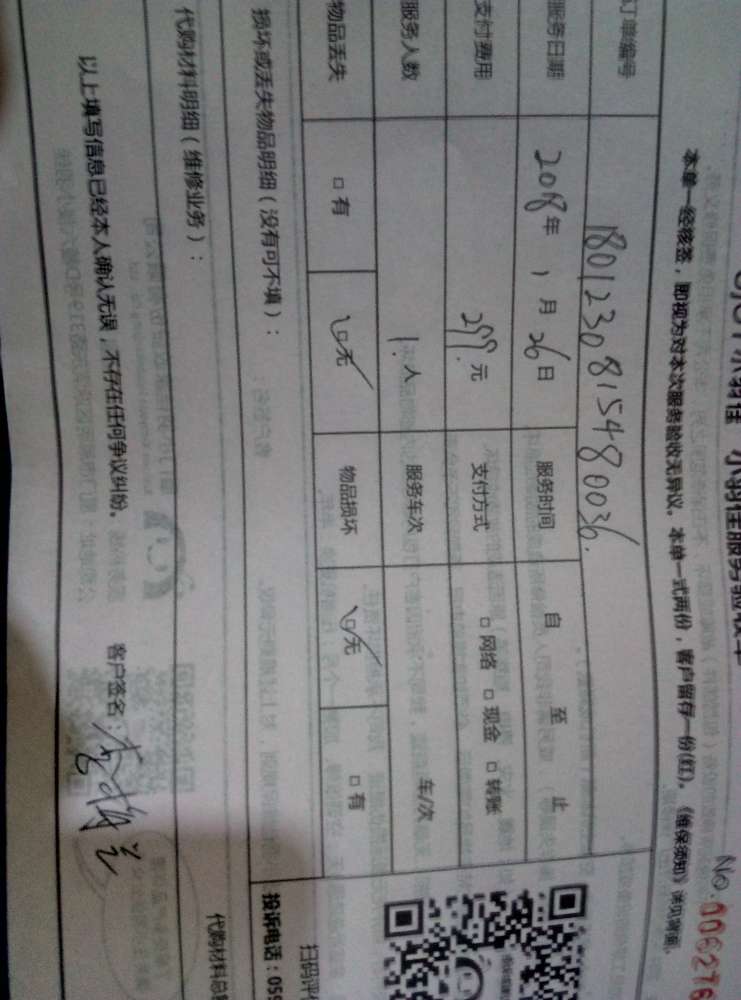 小羽佳服务验收单
No.
本单一经核签，即视为对本次服务验收无异议。本单一式两份，客户留存一份(红)。《维保须知》详见背面。
订单编号 180123081548 0036.
服务日期 2018年 1月 26日 服务时间 自 至 止
支付费用 299.元 支付方式 □ 网络 □ 现金 □ 转账
服务人数 1.人 服务车次 车/次
物品丢失 □ 有 □ 无 物品损坏 □ 无 □ 有
损坏或丢失物品明细（没有可不填）：
代购材料明细（维修业务）：
代购材料总
扫码评
投诉电话：059
以上填写信息已经本人确认无误，不存在任何争议纠纷。
客户签名：